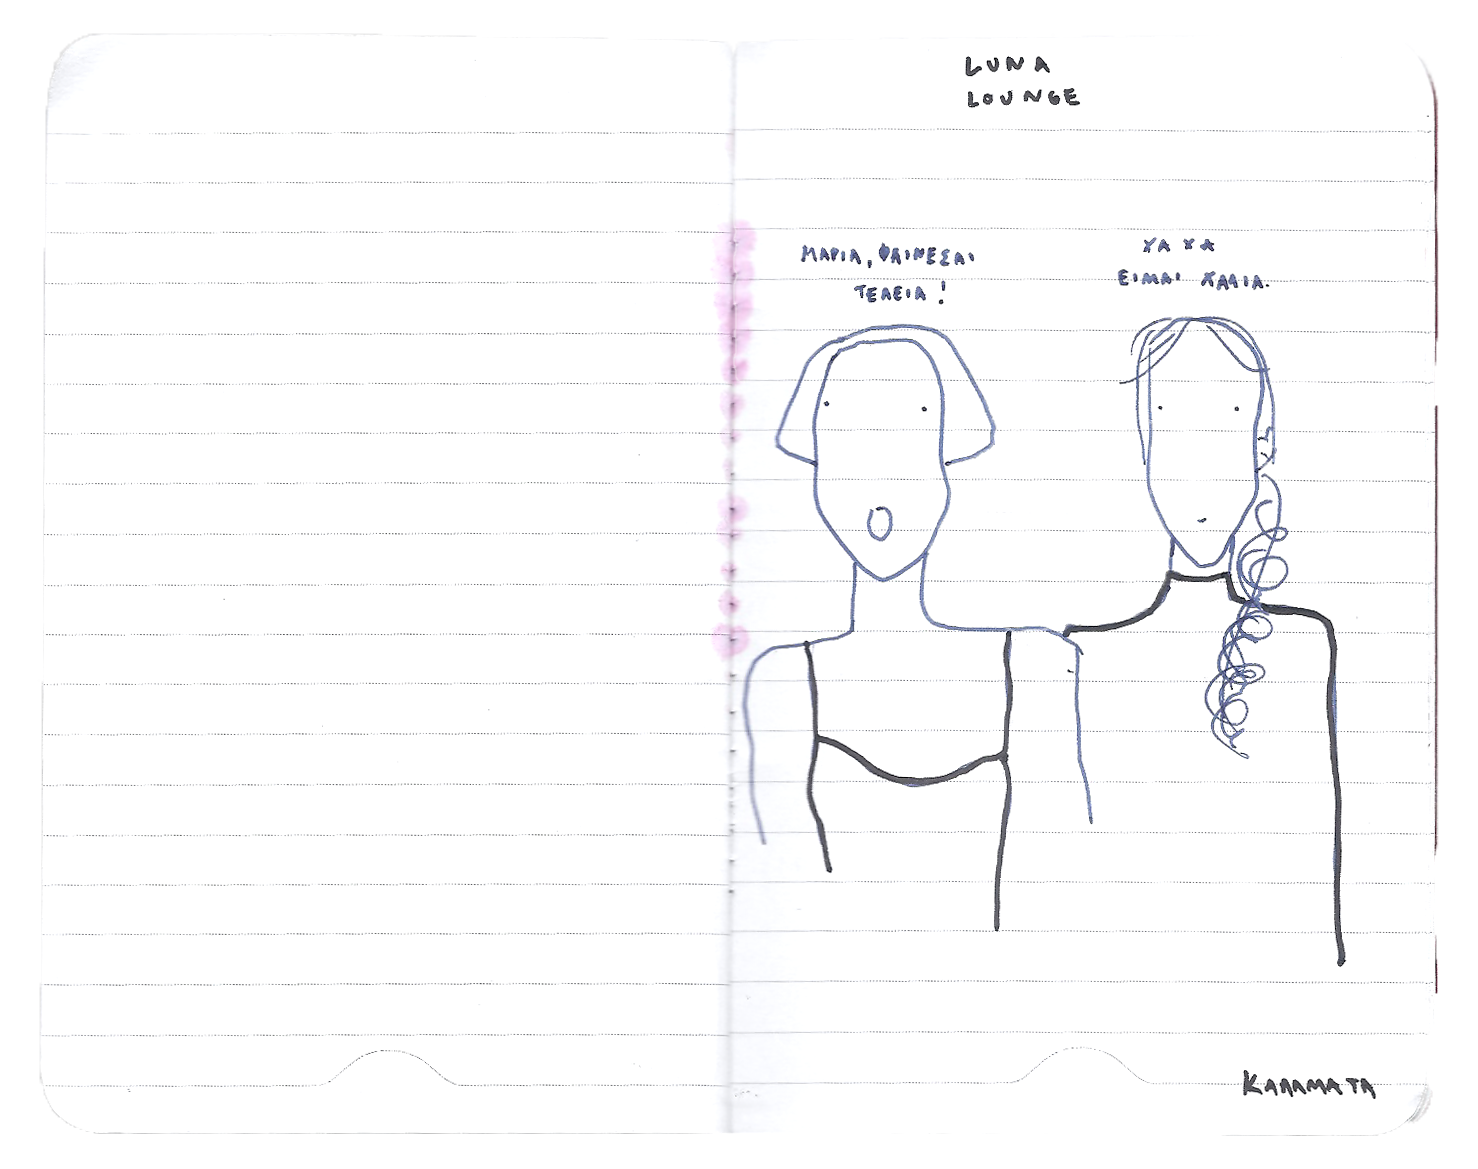 LUNA
LOUNGE
ΜΑΡΙΑ, ΦΑΙΝΕΣΑΙ
ΤΕΛΕΙΑ!
ΧΑ ΧΑ
ΕΙΜΑΙ ΧΑΛΙΑ.
ΚΑΛΑΜΑΤΑ